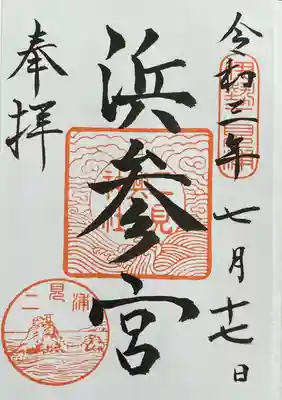 令和三年七月十七日
浜参宮
奉拝
二見浦